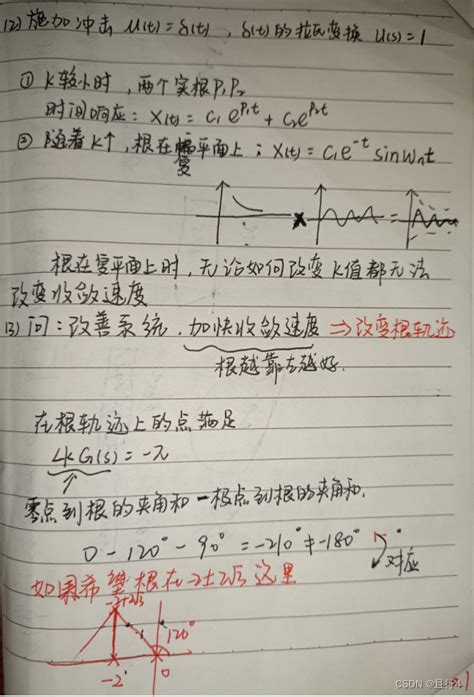 (2) 施加冲击 u(t)=δ(t), δ(t)的拉氏变换 U(s)=1
① K较小时, 两个实根P₁P₂
时间响应: X(t)=C₁e^{P₁t}+C₂e^{P₂t}
② 随着K↑, 根在复平面上; X(t)=C₁e^{-t}sinωₙt
根在复平面上时, 无论如何改变K值都无法
改变收敛速度
(3) 问: 改善系统, 加快收敛速度 ⇒改变根轨迹
根越靠左越好.
在根轨迹上的点满足
∠KG(s)=-π
零点到根的夹角和-极点到根的夹角和.
0-120°-90°=-210°≠-180° 对应
如果希望根在-2±2√3这里
-2+2√3
120°
-2
0
CSDN @且行4